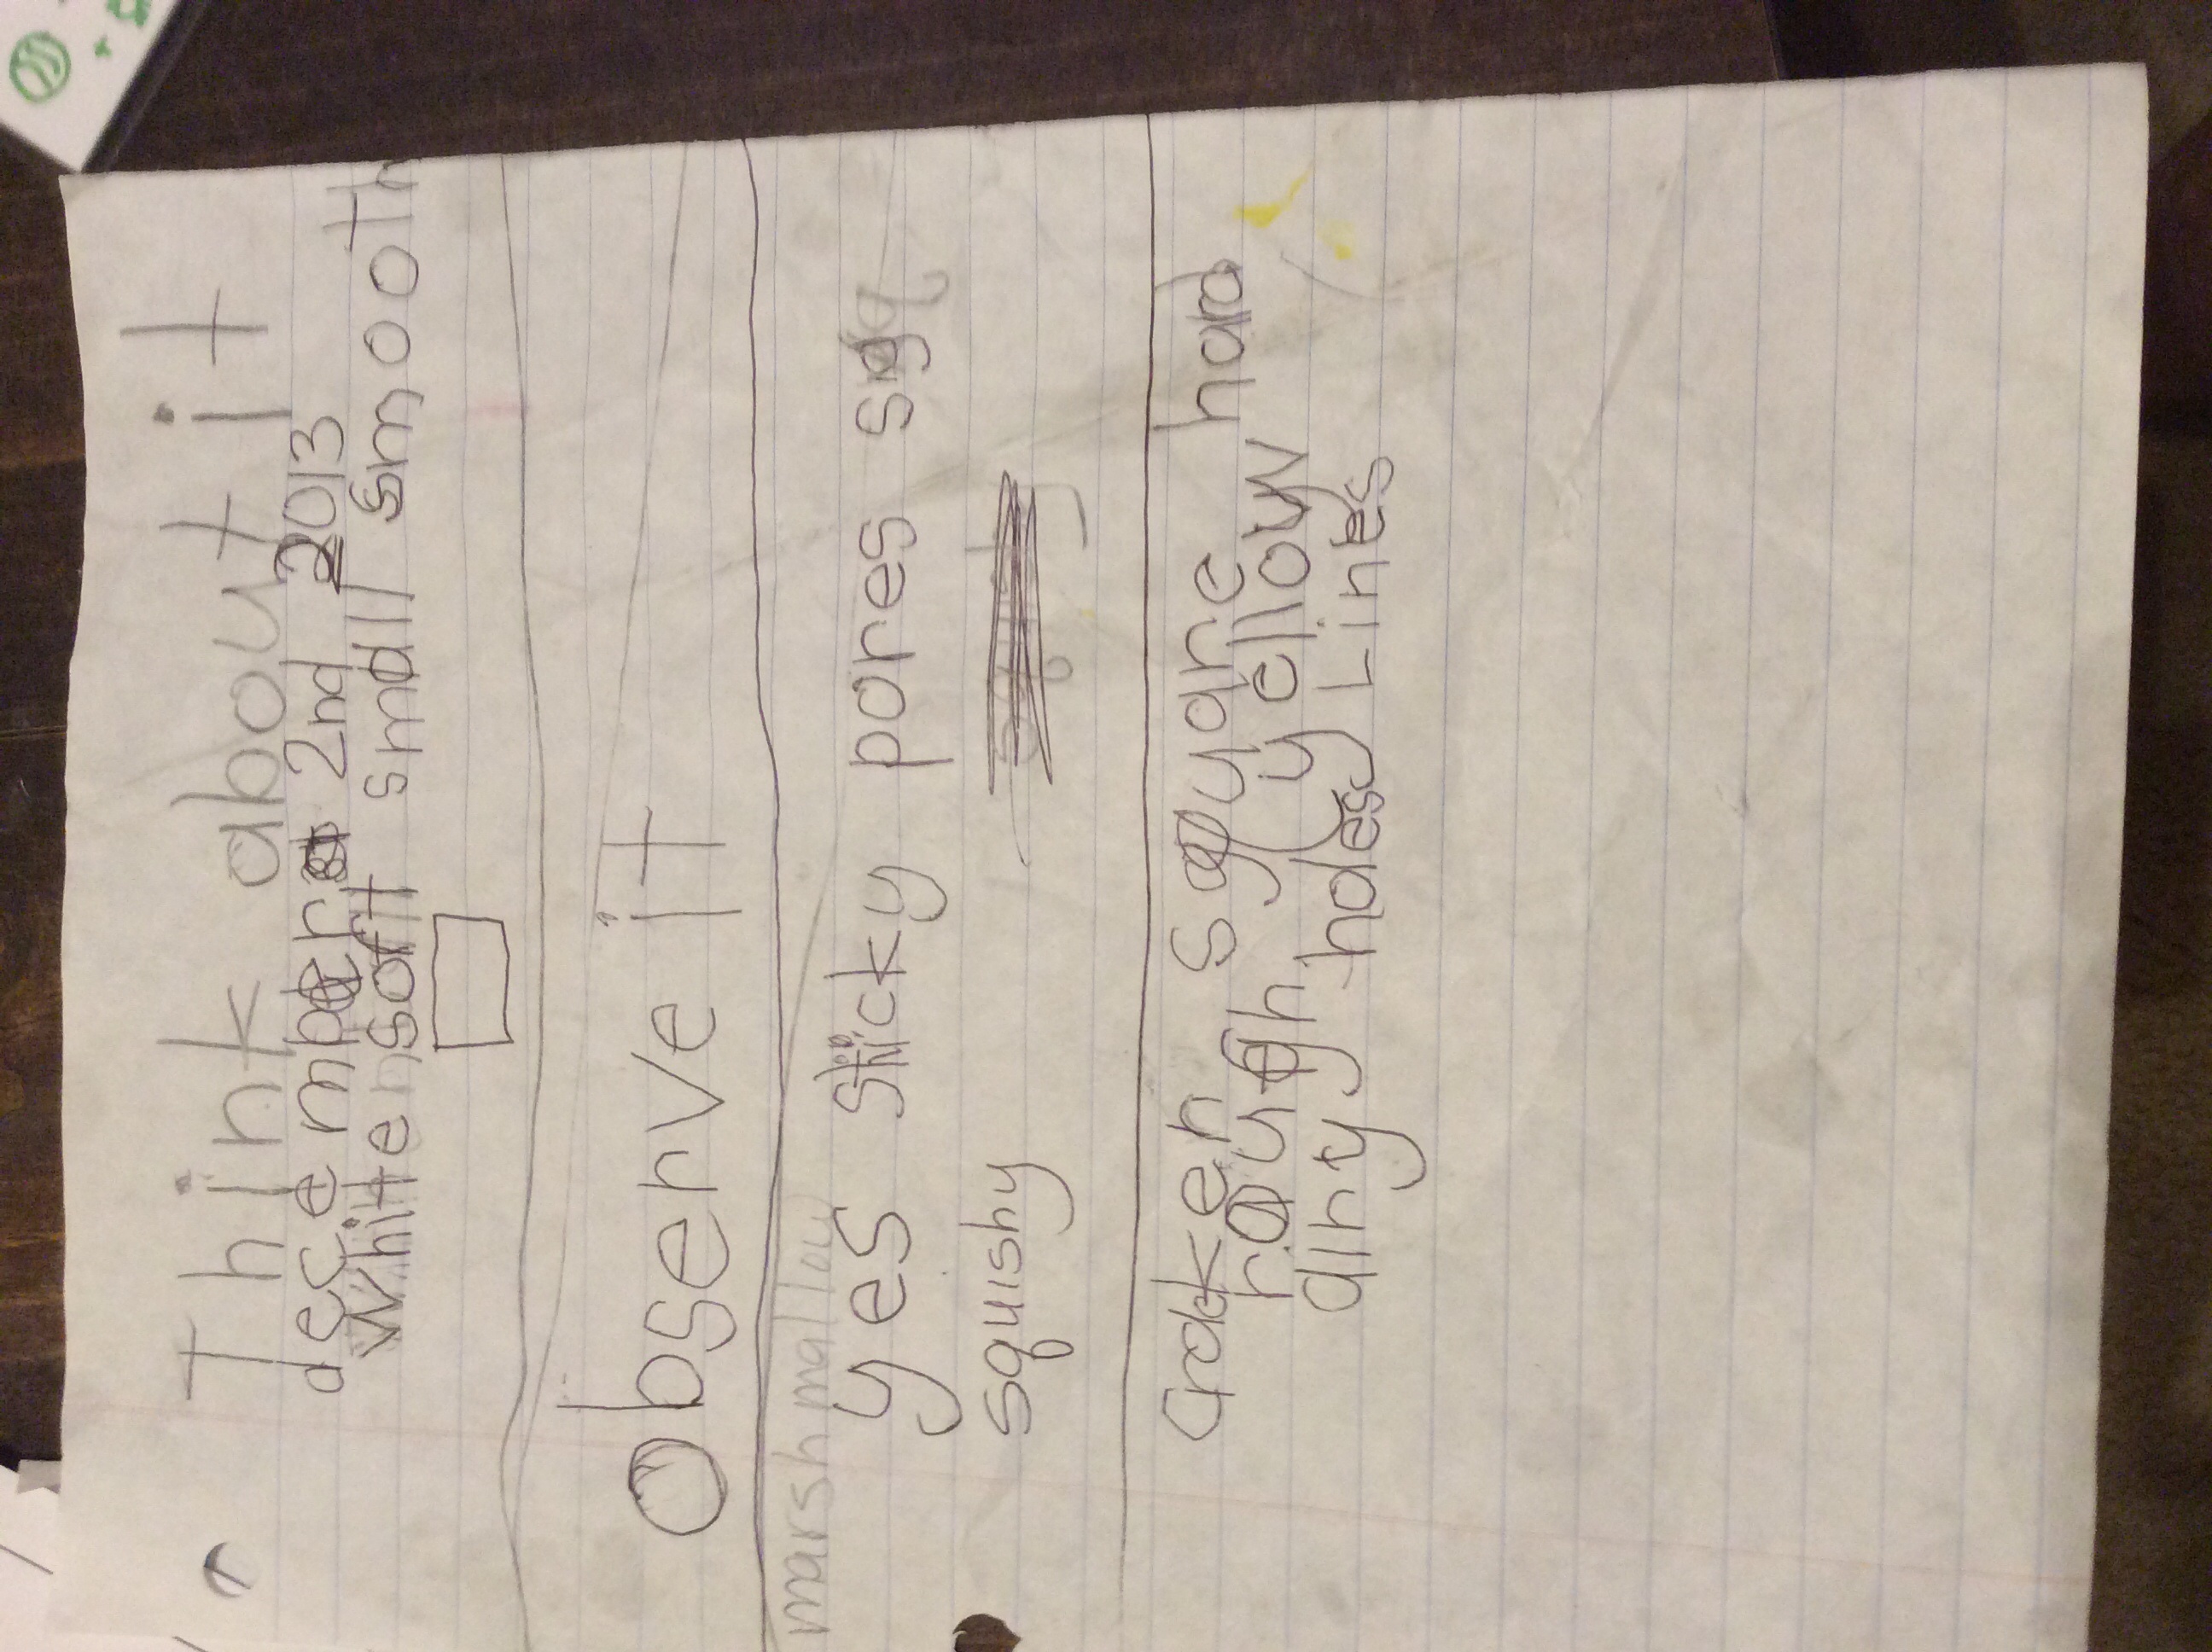 Think about it
december 2nd 2013
White soft small smooth
Observe it
marshmallow
yes sticky pores
squishy
Craken square hard
rough yellow
dirty holes Lines